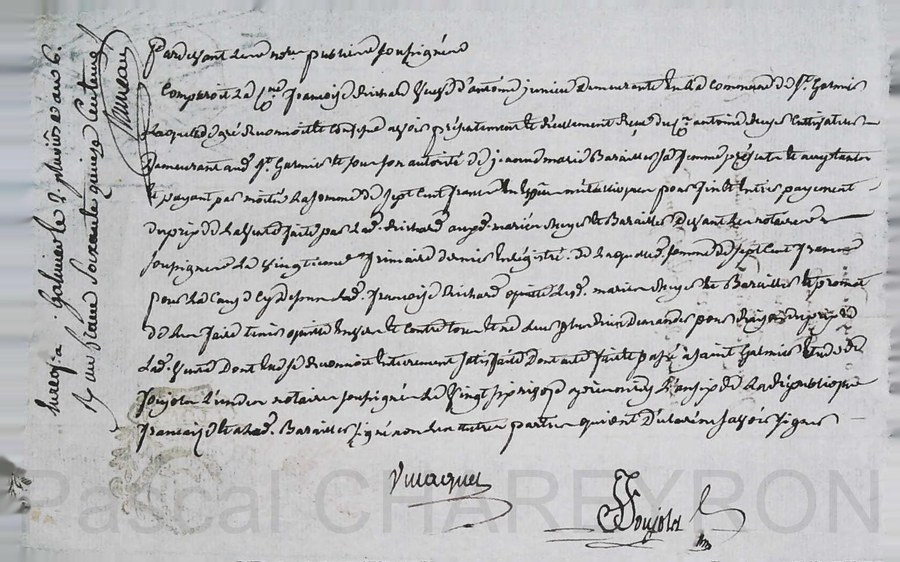 Pardevant Les nore publics soussignés
Comparoit La Cne francoise Richard veuve d'antoine junieu Demeurante En La Commune de St. Galmier
Laquelle de gré Reconnoit et Confesse avoir présentement et réellement Reçu du Cn antoine
Demeurant aud. St. Galmier et sous son autorité de jeanne marie Barailler sa femme présente et acceptante
et payant par moitié La somme de Sept Cent francs En Espèces métalliques pour Final Entier payement
Du prix de La vente faite par Lad. Richard auxd. mariés et Barailler Devant Le notaire
soussigné Le vingt frimaire dernier Enrégistré. de Laquelle d. somme de Sept Cent francs
pour La Cause Cy dessus Lad. francoise Richard quitte Lesd. mariés et Barailler et promet
de Les faire tenir quittes Envers et Contre tous et ne Leur plus Rien demander pour Raison du prix de
Lad. vente Dont Elle se Reconnoit Entièrement satisfaite Dont acte fait et passé à Saint Galmier Etude de
Poujolet L'un des notaires soussignés Le vingt six nivose après midi L'an six de La République
francoise et a Lad. Barailler signé non Les autres parties qui ont Déclaré ne savoir signer
Vmaguet
Poujolet
Pascal CHAREYRON
Enreg. a Galmier le 2 pluviose an 6.
R. un franc soixante quinze Centimes